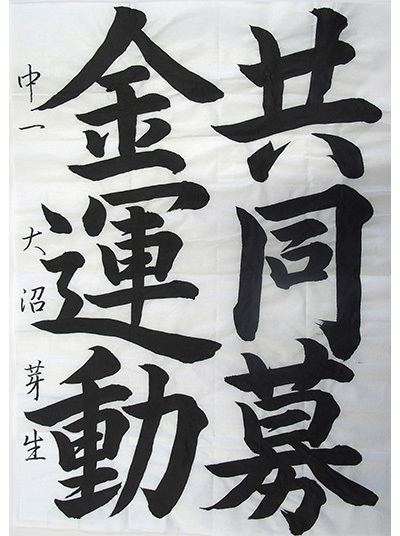 共同募
金運動
中一 大沼芽生